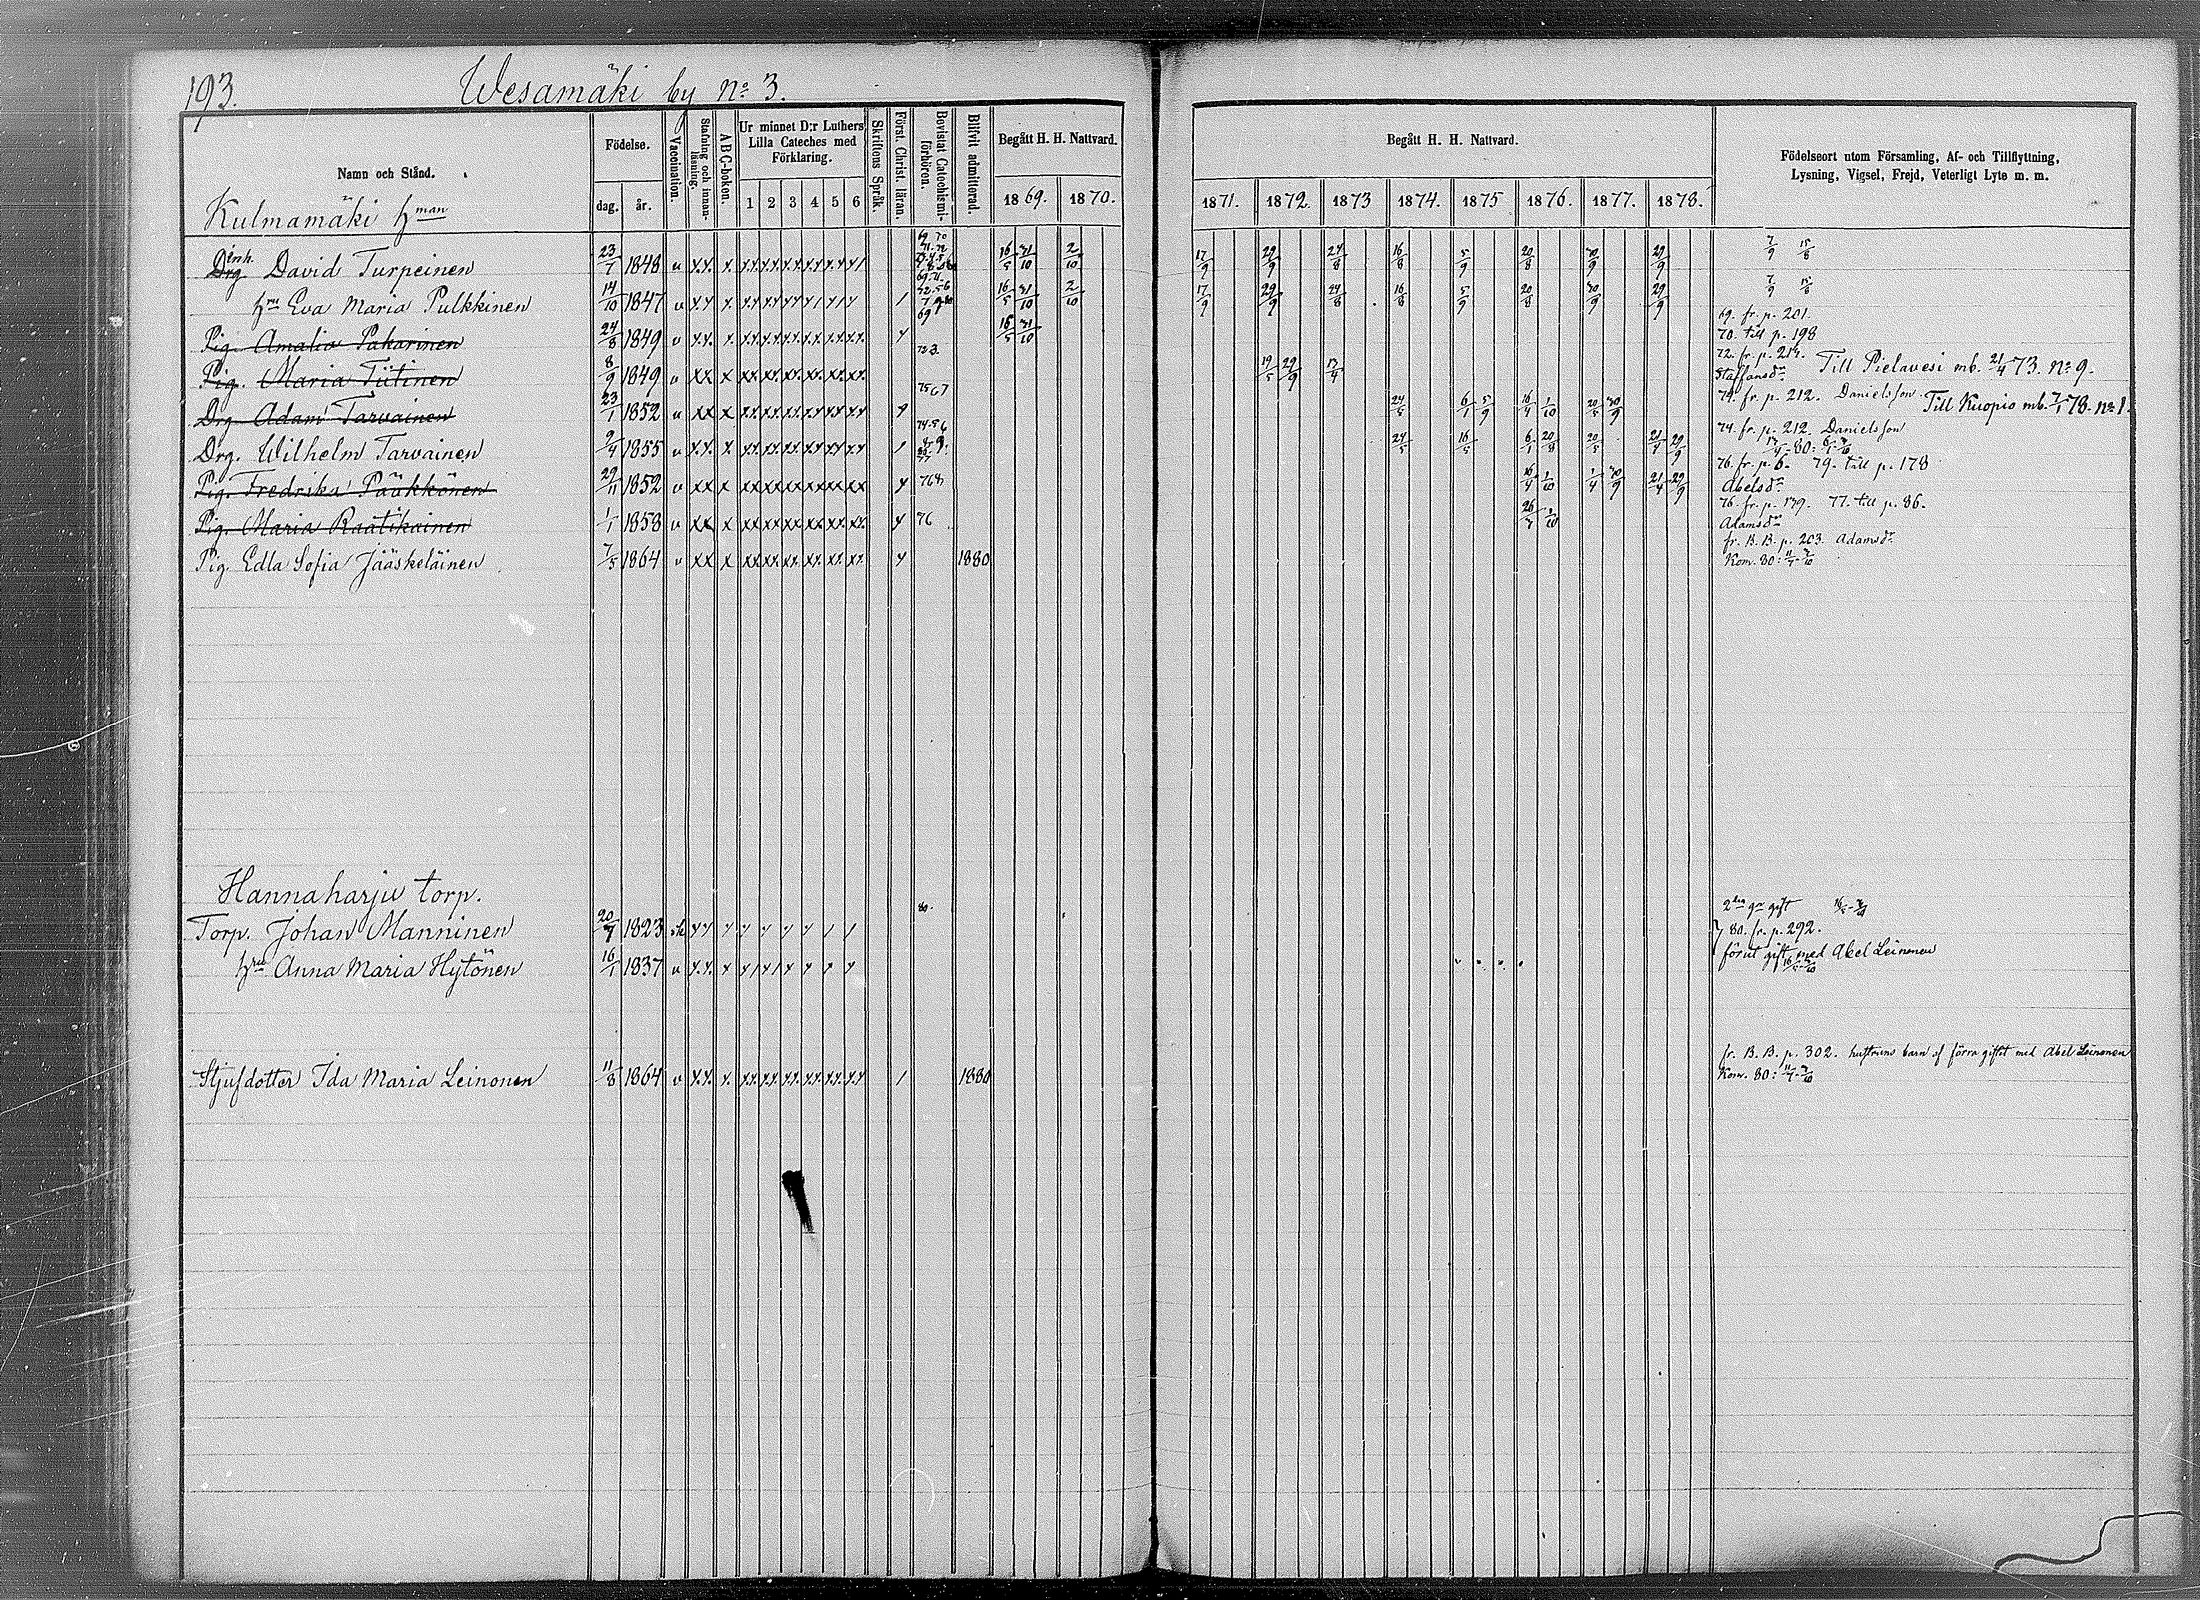 193.
Wesamäki by No 3.
Namn och Stånd.
Födelse.
dag. år.
Vaccination.
Stafning och innan-läsning.
A B C-boken.
Ur minnet D:r Luthers Lilla Cateches med Förklaring.
1 2 3 4 5 6
Skriftens Språk.
Först. Christ. läran.
Bevistat Catechismi-förhören.
Blifvit admitterad.
Begått H. H. Nattvard.
1869. 1870.
Begått H. H. Nattvard.
1871. 1872. 1873 1874. 1875 1876. 1877. 1878.
Födelseort utom Församling, Af- och Tillflyttning,
Lysning, Vigsel, Frejd, Veterligt Lyte m. m.
Kulmamäki hman
Drg inh. David Turpeinen 23/7 1848 v 16/5 31/10 2/10 17/9 29/9 24/8 16/8 5/9 20/8 30/9 29/9 7/9 15/8
hru Eva Maria Pulkkinen 14/10 1847 v 16/5 31/10 2/10 17/9 29/9 24/8 16/8 5/9 20/8 30/9 29/9 7/9 15/8
69. fr. p. 201.
Pig. Amalia Pakarinen 24/8 1849 v 69 16/5 31/10 70. till p. 198
72. fr. p. 214.
Pig. Maria Tiitinen 8/9 1849 v 19/5 29/9 13/4 Staffansdr Till Pielavesi mb. 21/4 73. No 9.
74. fr. p. 212. Danielsson
Drg. Adam Tarvainen 23/1 1852 v 24/5 6/1 5/9 16/4 1/10 20/5 30/9 Till Kuopio mb. 7/1 78. No 1.
74. fr. p. 212 Danielsson
Drg. Wilhelm Tarvainen 9/4 1855 v 24/5 16/5 6/1 20/8 20/5 21/4 29/9
76. fr. p. 6. 79. till p. 178
Pig. Fredrika Pääkkönen 29/11 1852 v 16/4 1/10 1/4 30/9 21/4 29/9 Abelsdr
76. fr. p. 139. 77. till p. 86.
Pig. Maria Raatikainen 1/1 1858 v 76 Adamsdr
fr. B. B. p. 203. Adamsdr
Pig. Edla Sofia Jääskeläinen 7/5 1864 v 1880 Kom. 80:
Hannaharju torp.
80.
2dra gn gift
Torp. Johan Manninen 20/7 1823 80. fr. p. 292.
hru Anna Maria Hytönen 16/1 1837 v förut gift med Abel Leinonen
fr. B. B. p. 302. hustruns barn af förra giftet med Abel Leinonen
Stjufdotter Ida Maria Leinonen 11/8 1864 v 1880 Kom. 80: